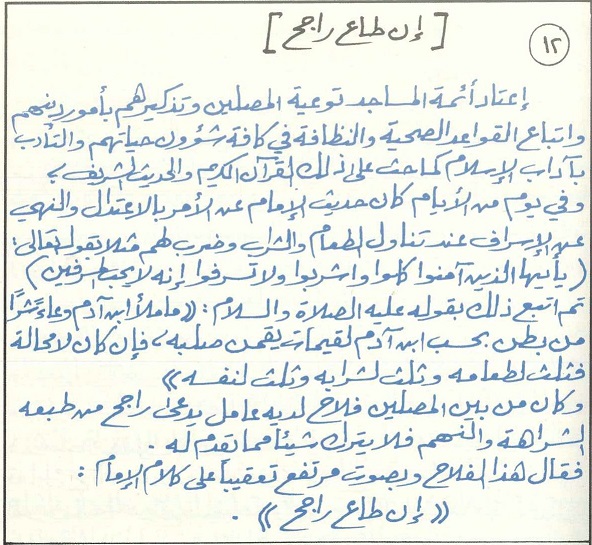 ١٢
[ إن طاع راجح ]
إعتاد أئمة المساجد توعية المصلين وتذكيرهم بأمور دينهم
واتباع القواعد الصحية والنظافة في كافة شؤون حياتهم والتأدب
بآداب الإسلام كما حث على ذلك القرآن الكريم والحديث الشريف ،
وفي يوم من الأيام كان حديث الإمام عن الأمر بالاعتدال والنهي
عن الإسراف عند تناول الطعام والشراب وضرب لهم مثلا بقوله تعالى :
( يا أيها الذين آمنوا كلوا واشربوا ولا تسرفوا إنه لا يحب المسرفين )
ثم اتبع ذلك بقوله عليه الصلاة والسلام : (( ما ملأ ابن آدم وعاءً شرًا
من بطن بحسب ابن آدم لقيمات يقمن صلبه ، فإن كان لا محالة
فثلث لطعامه وثلث لشرابه وثلث لنفسه ))
وكان من بين المصلين فلاح لديه عامل يدعى راجح من طبعه
الشراهة والنهم فلا يترك شيئاً مما تقدم له .
فقال هذا الفلاح وبصوت مرتفع تعقيباً على كلام الإمام :
(( إن طاع راجح )) .